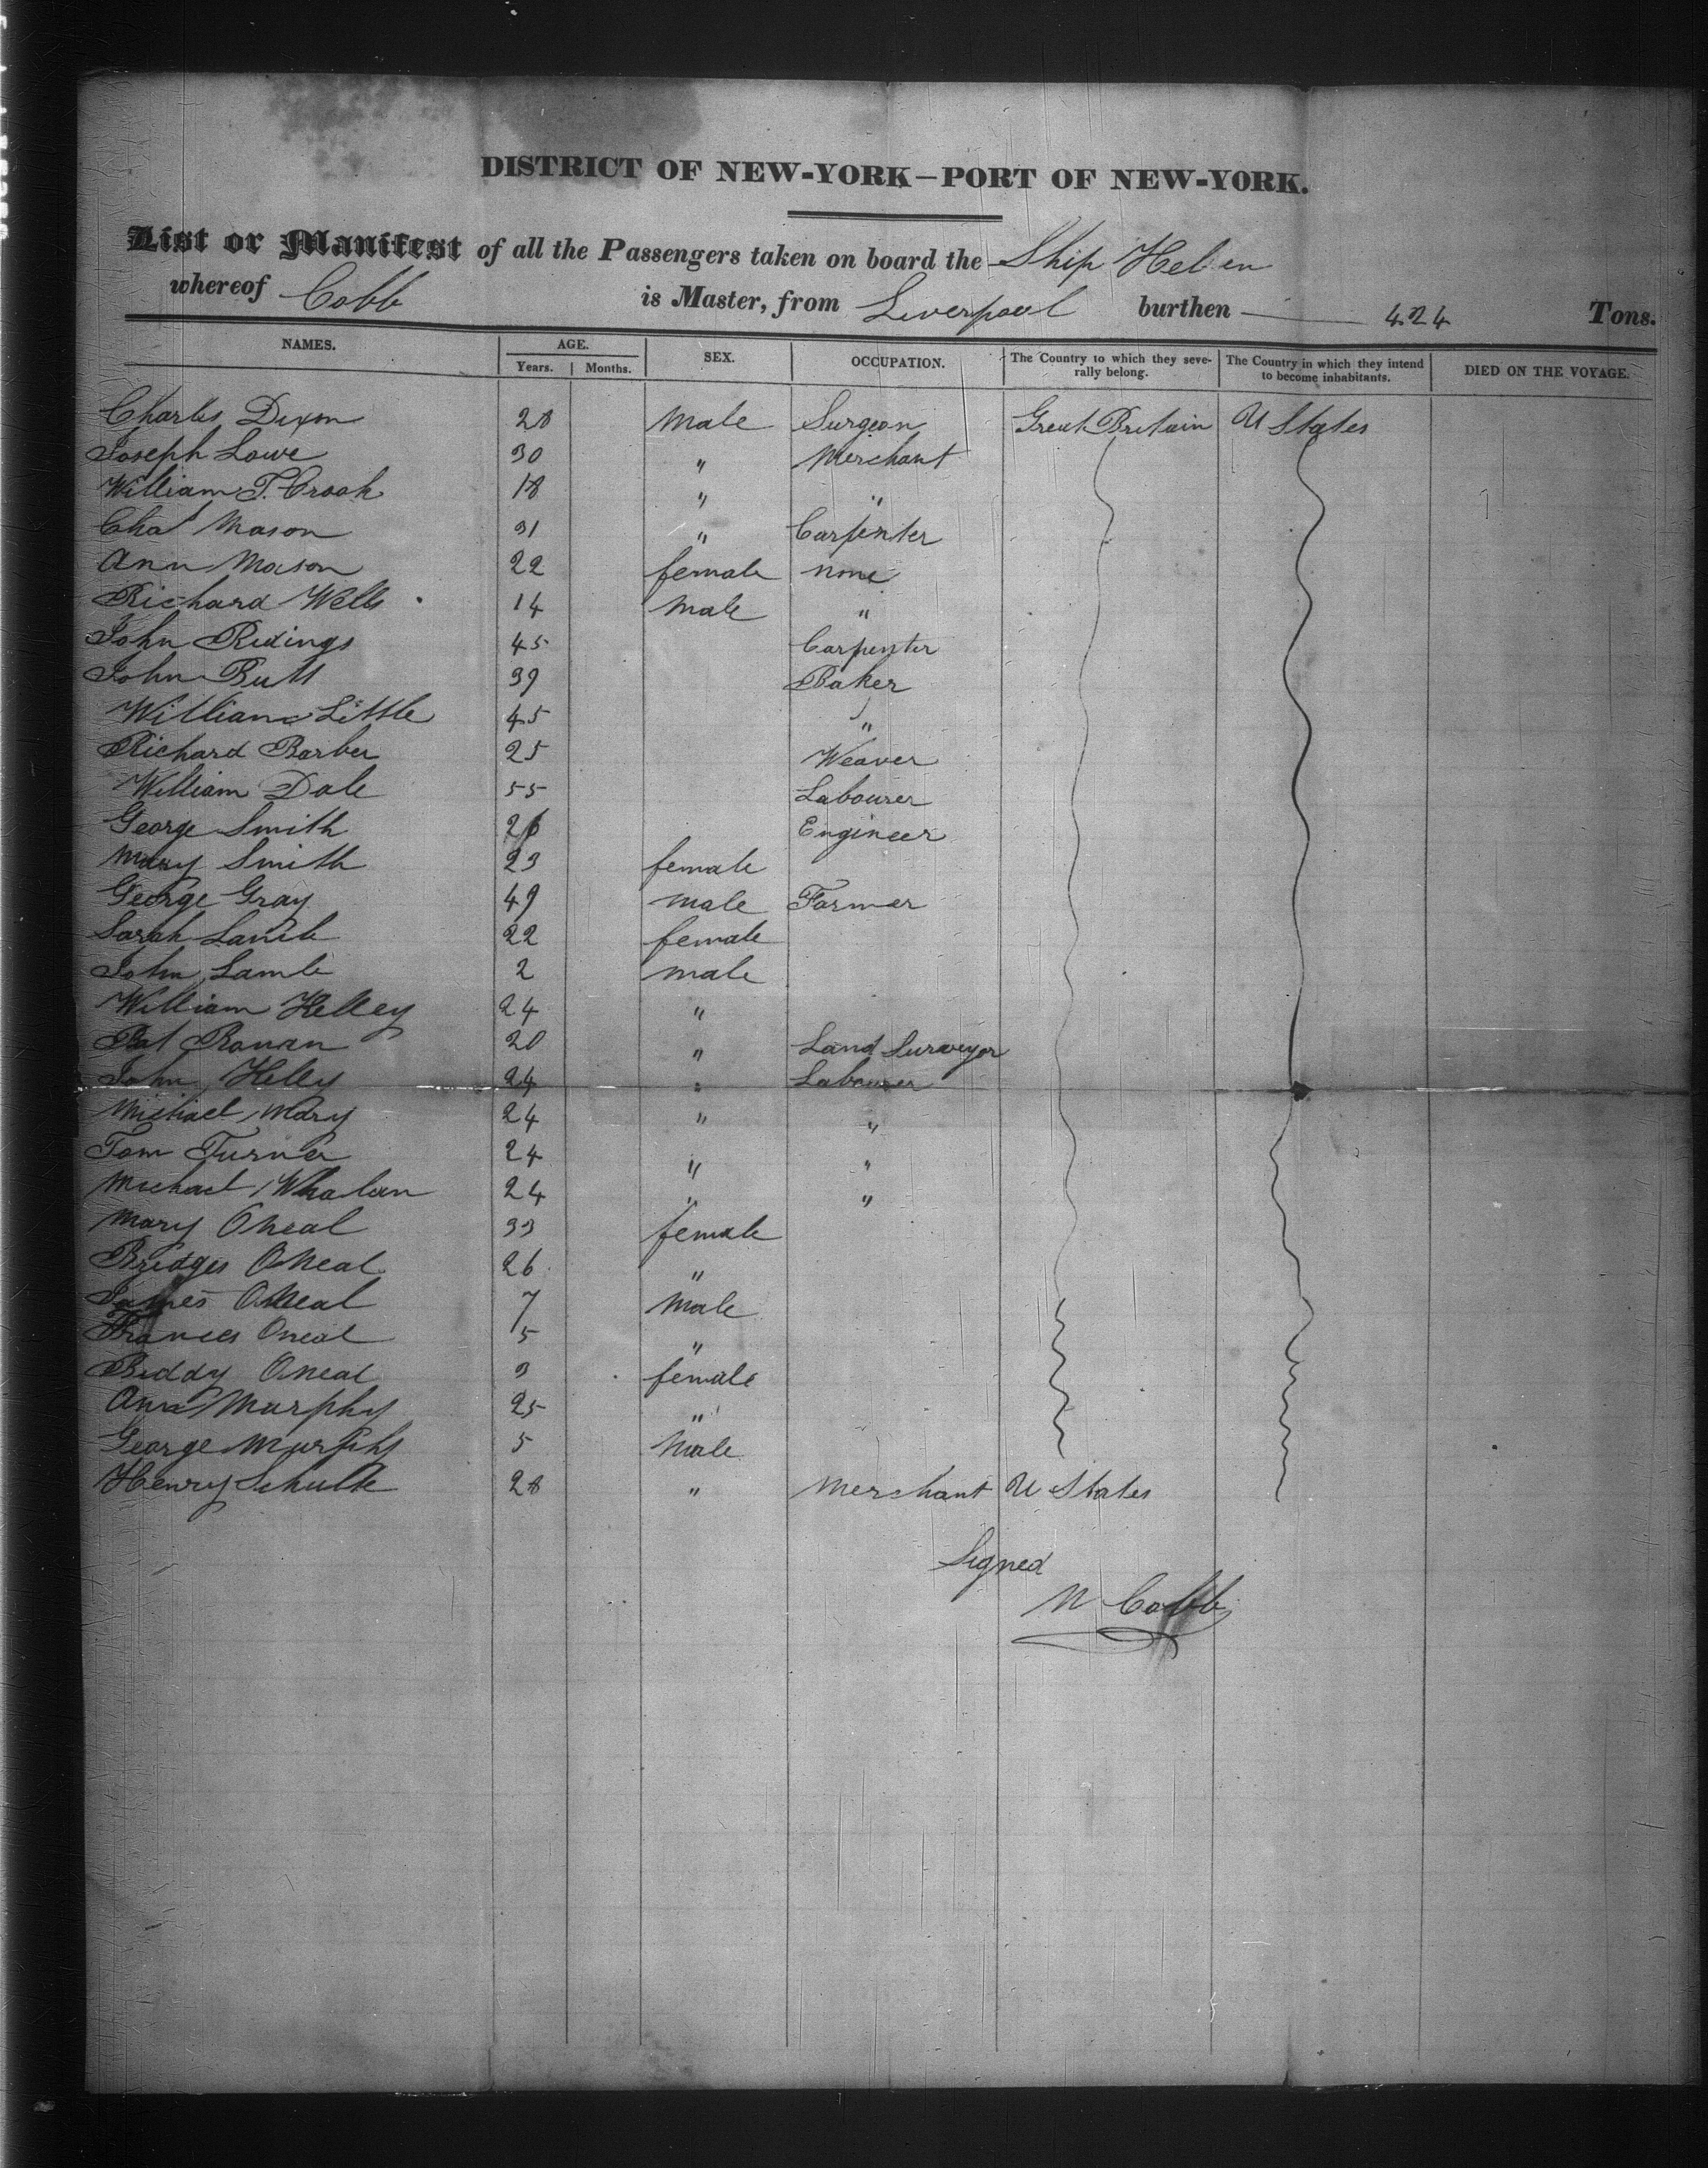 DISTRICT OF NEW-YORK—PORT OF NEW-YORK.
List or Manifest of all the Passengers taken on board the Ship Helen
whereof Cobb is Master, from Liverpool burthen 424 Tons.
NAMES. AGE. SEX. OCCUPATION. The Country to which they severally belong. The Country in which they intend to become inhabitants. DIED ON THE VOYAGE.
Years. Months.
Charles Dixon 28 Male Surgeon Great Britain U States
Joseph Lowe 30 " Merchant
William T. Crook 18 " "
Chas Mason 31 " Carpenter
Ann Mason 22 female none
Richard Wells 14 Male "
John Ridings 45 Carpenter
John Butt 39 Baker
William Little 45 "
Richard Barber 25 Weaver
William Dale 55 Labourer
George Smith 26 Engineer
Mary Smith 23 female
George Gray 49 male Farmer
Sarah Lamb 22 female
John Lamb 2 male
William Kelley 24 "
Pat Ronan 20 " Land Surveyor
John Kelly 24 " Labourer
Michael Mary 24 " "
Tom Turner 24 " "
Michael Whalan 24 " "
Mary ONeal 33 female
Bridges ONeal 26 "
James ONeal 7 Male
Frances Oneal 5 "
Biddy ONeal 3 female
Ann Murphy 25 "
George Murphy 5 Male
Henry Schulte 28 " Merchant U States
Signed
N Cobb